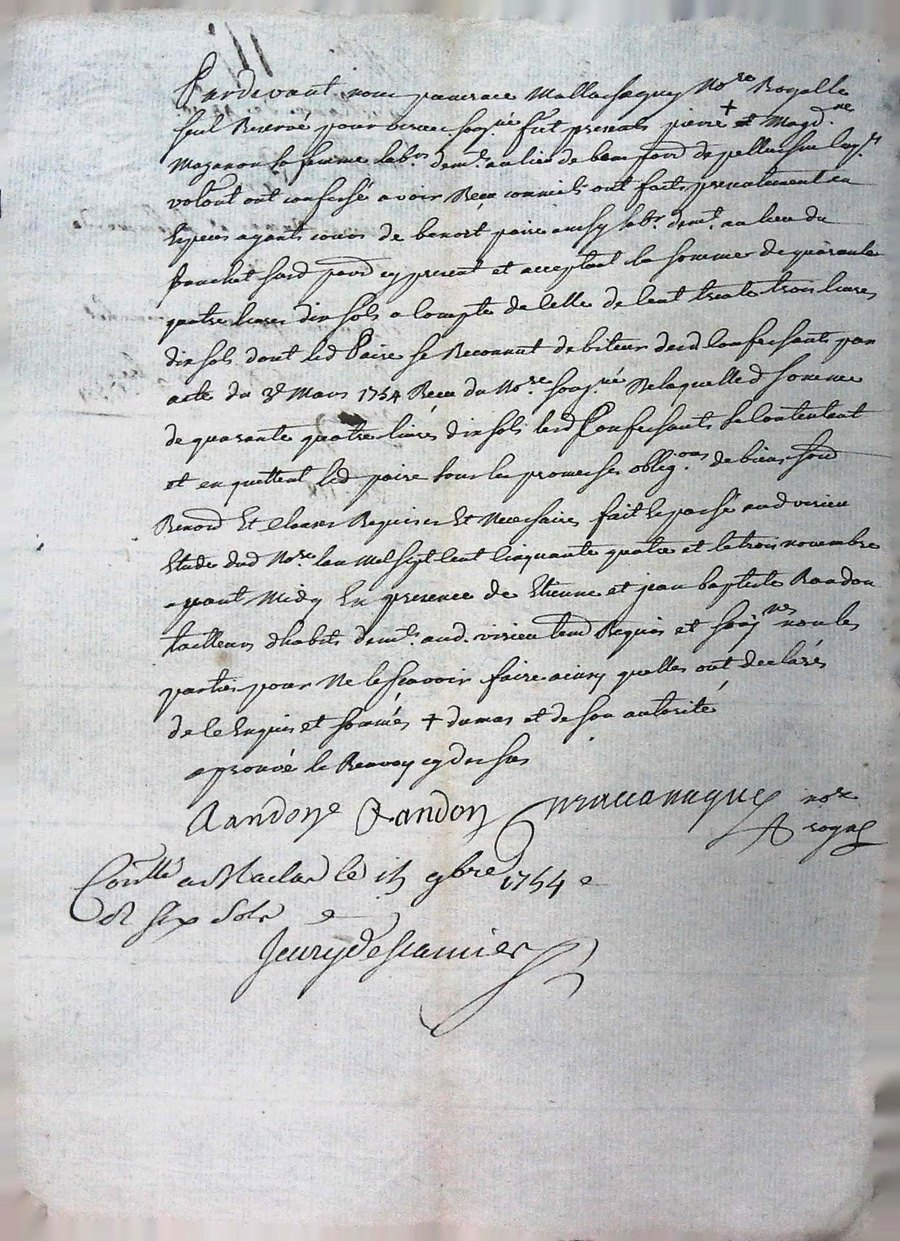 Pardevant nous pancrace Mallassagny No.re Royalle
seul Reservé pour virieu sousg.né fut presents pierre + et Magd.ne
Mazenon sa femme lab.rs dem.ts au lieu de beau fond de pellussin lesq.ls
volont ont confessé avoir Receu comme ils ont faits presentement en
Especes ayants cours de benoit paire aussy lab.r dem.t au lieu du
 parrd cy present et acceptant la somme de quarante
quatre livres dix sols a Compte de Celle de Cent trente trois livres
dix sols dont led Paire se Reconnut debiteur desd Confessants par
acte du 3e Mars 1754 Receu du No.re sousg.né De laquelle d somme
de quarante quatre livres dix sols lesd Confessants se Contentent
et en quettent led paire sous les promesses oblig.ons de biens soud
Renond Et clauses Requises Et Necessaires fait Et passé aud virieu
Etude dud No.re lan Mil sept Cent Cinquante quatre et le trois novembre
apant Midy En presence de Etienne et jean baptiste Randon
tailleurs dhabits dem.ts aud. virieu Requis et sousg.nes non les
parties pour Ne le scavoir faire ainsy quelles ont declarés
de ce Enquis et sommés + dumas et de son autorité
aprouvé le Renvoy cy dessus
Randon Randon no.re
royal
Con.llé a Maclas le 15 9bre 1754
 six sols